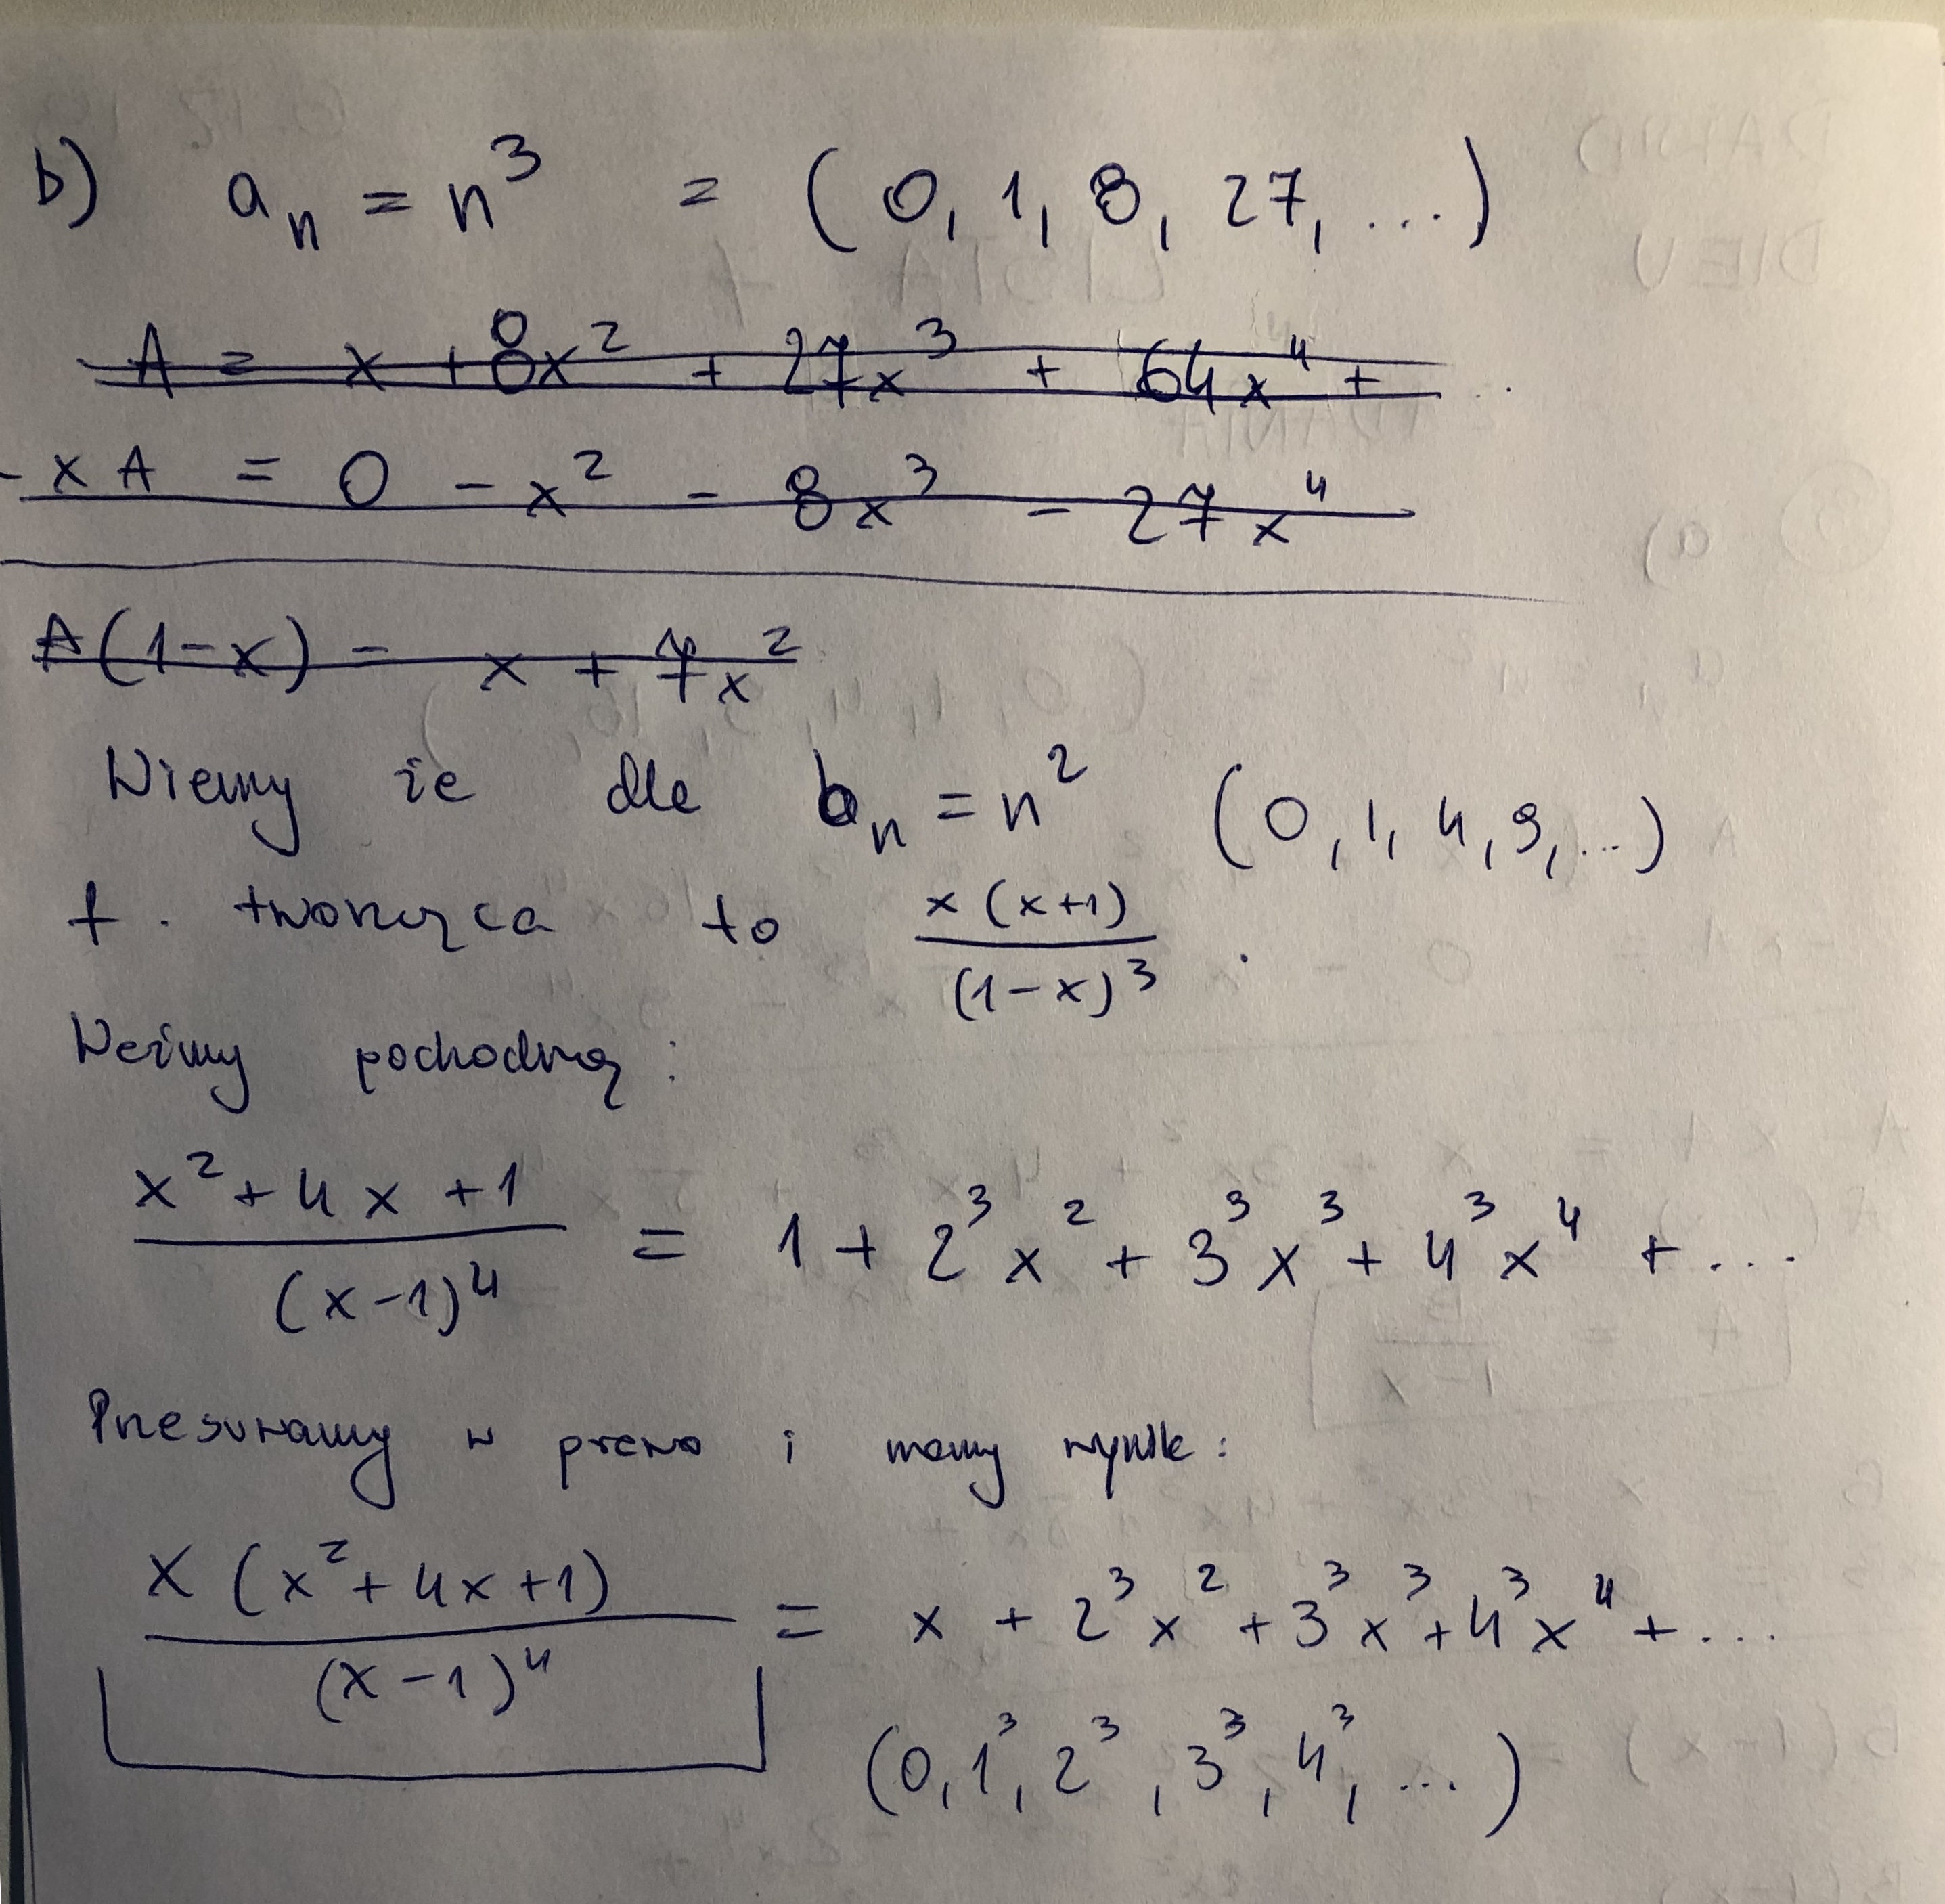 b) aₙ = n³ = (0, 1, 8, 27, ...)
A = x + 8x² + 27x³ + 64x⁴ + .
- x A = 0 - x² - 8x³ - 27x⁴
A(1-x) = x + 7x²
Wiemy że dla bₙ = n² (0, 1, 4, 9, ...)
f. tworząca to x(x+1) / (1-x)³ .
Weźmy pochodną :
x² + 4x + 1 / (x-1)⁴ = 1 + 2³x² + 3³x³ + 4³x⁴ + ...
Przesuwamy w prawo i mamy wynik :
x(x² + 4x + 1) / (x-1)⁴ = x + 2³x² + 3³x³ + 4³x⁴ + ...
(0, 1³, 2³, 3³, 4³, ...)